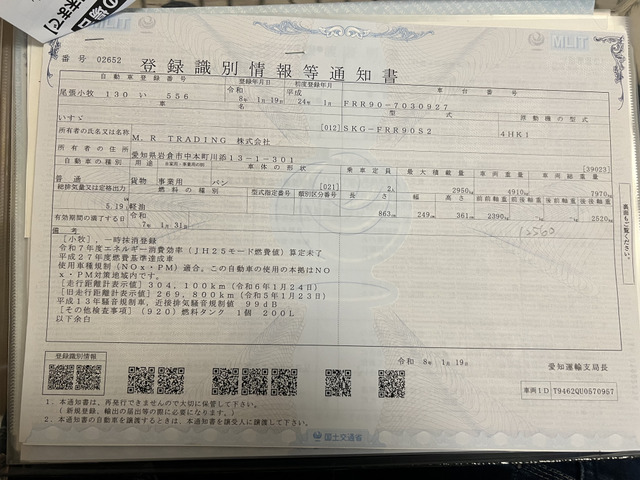 MLIT
番号 02652
登録識別情報等通知書
自動車登録番号 登録年月日 初度登録年月 車台番号
尾張小牧 130 い 556 令和 8年 1月19日 平成 24年 1月 FRR90-7030927
車名 型式 原動機の型式
いすゞ [012] SKG-FRR90S2 4HK1
所有者の氏名又は名称 M.R TRADING 株式会社
所有者の住所 愛知県岩倉市中本町川添13-1-301 [39023]
自動車の種別 用途 自家用・事業用の別 車体の形状 乗車定員 最大積載量 車両重量 車両総重量
普通 貨物 事業用 バン [021] 2人 2950kg 4910kg 7970kg
総排気量又は定格出力 燃料の種別 型式指定番号 類別区分番号 長さ 幅 高さ 前前軸重 前後軸重 後前軸重 後後軸重
5.19L 軽油 863cm 249cm 361cm 2390kg -kg -kg 2520kg
有効期間の満了する日 令和 7年 1月31日
備考
12560
[小牧],一時抹消登録
令和7年度エネルギー消費効率(JH25モード燃費値)算定未了
平成27年度燃費基準達成車
使用車種規制(NOx・PM)適合。この自動車の使用の本拠はNO
x・PM対策地域内です。
[走行距離計表示値]304,100km(令和6年1月24日)
[旧走行距離計表示値]269,800km(令和5年1月23日)
平成13年騒音規制車,近接排気騒音規制値 99dB
[その他検査事項](920)燃料タンク 1個 200L
以下余白
裏面もご覧ください。
登録識別情報
令和 8年 1月19日
愛知運輸支局長
車両ID T9462QU0570957
1.本通知書は、再発行できませんので大切に保管して下さい。
(新規登録、輸出の届出等の際に必要になります。)
2.本通知書の自動車を譲渡するときは、本通知書を譲受人に譲渡して下さい。
国土交通省